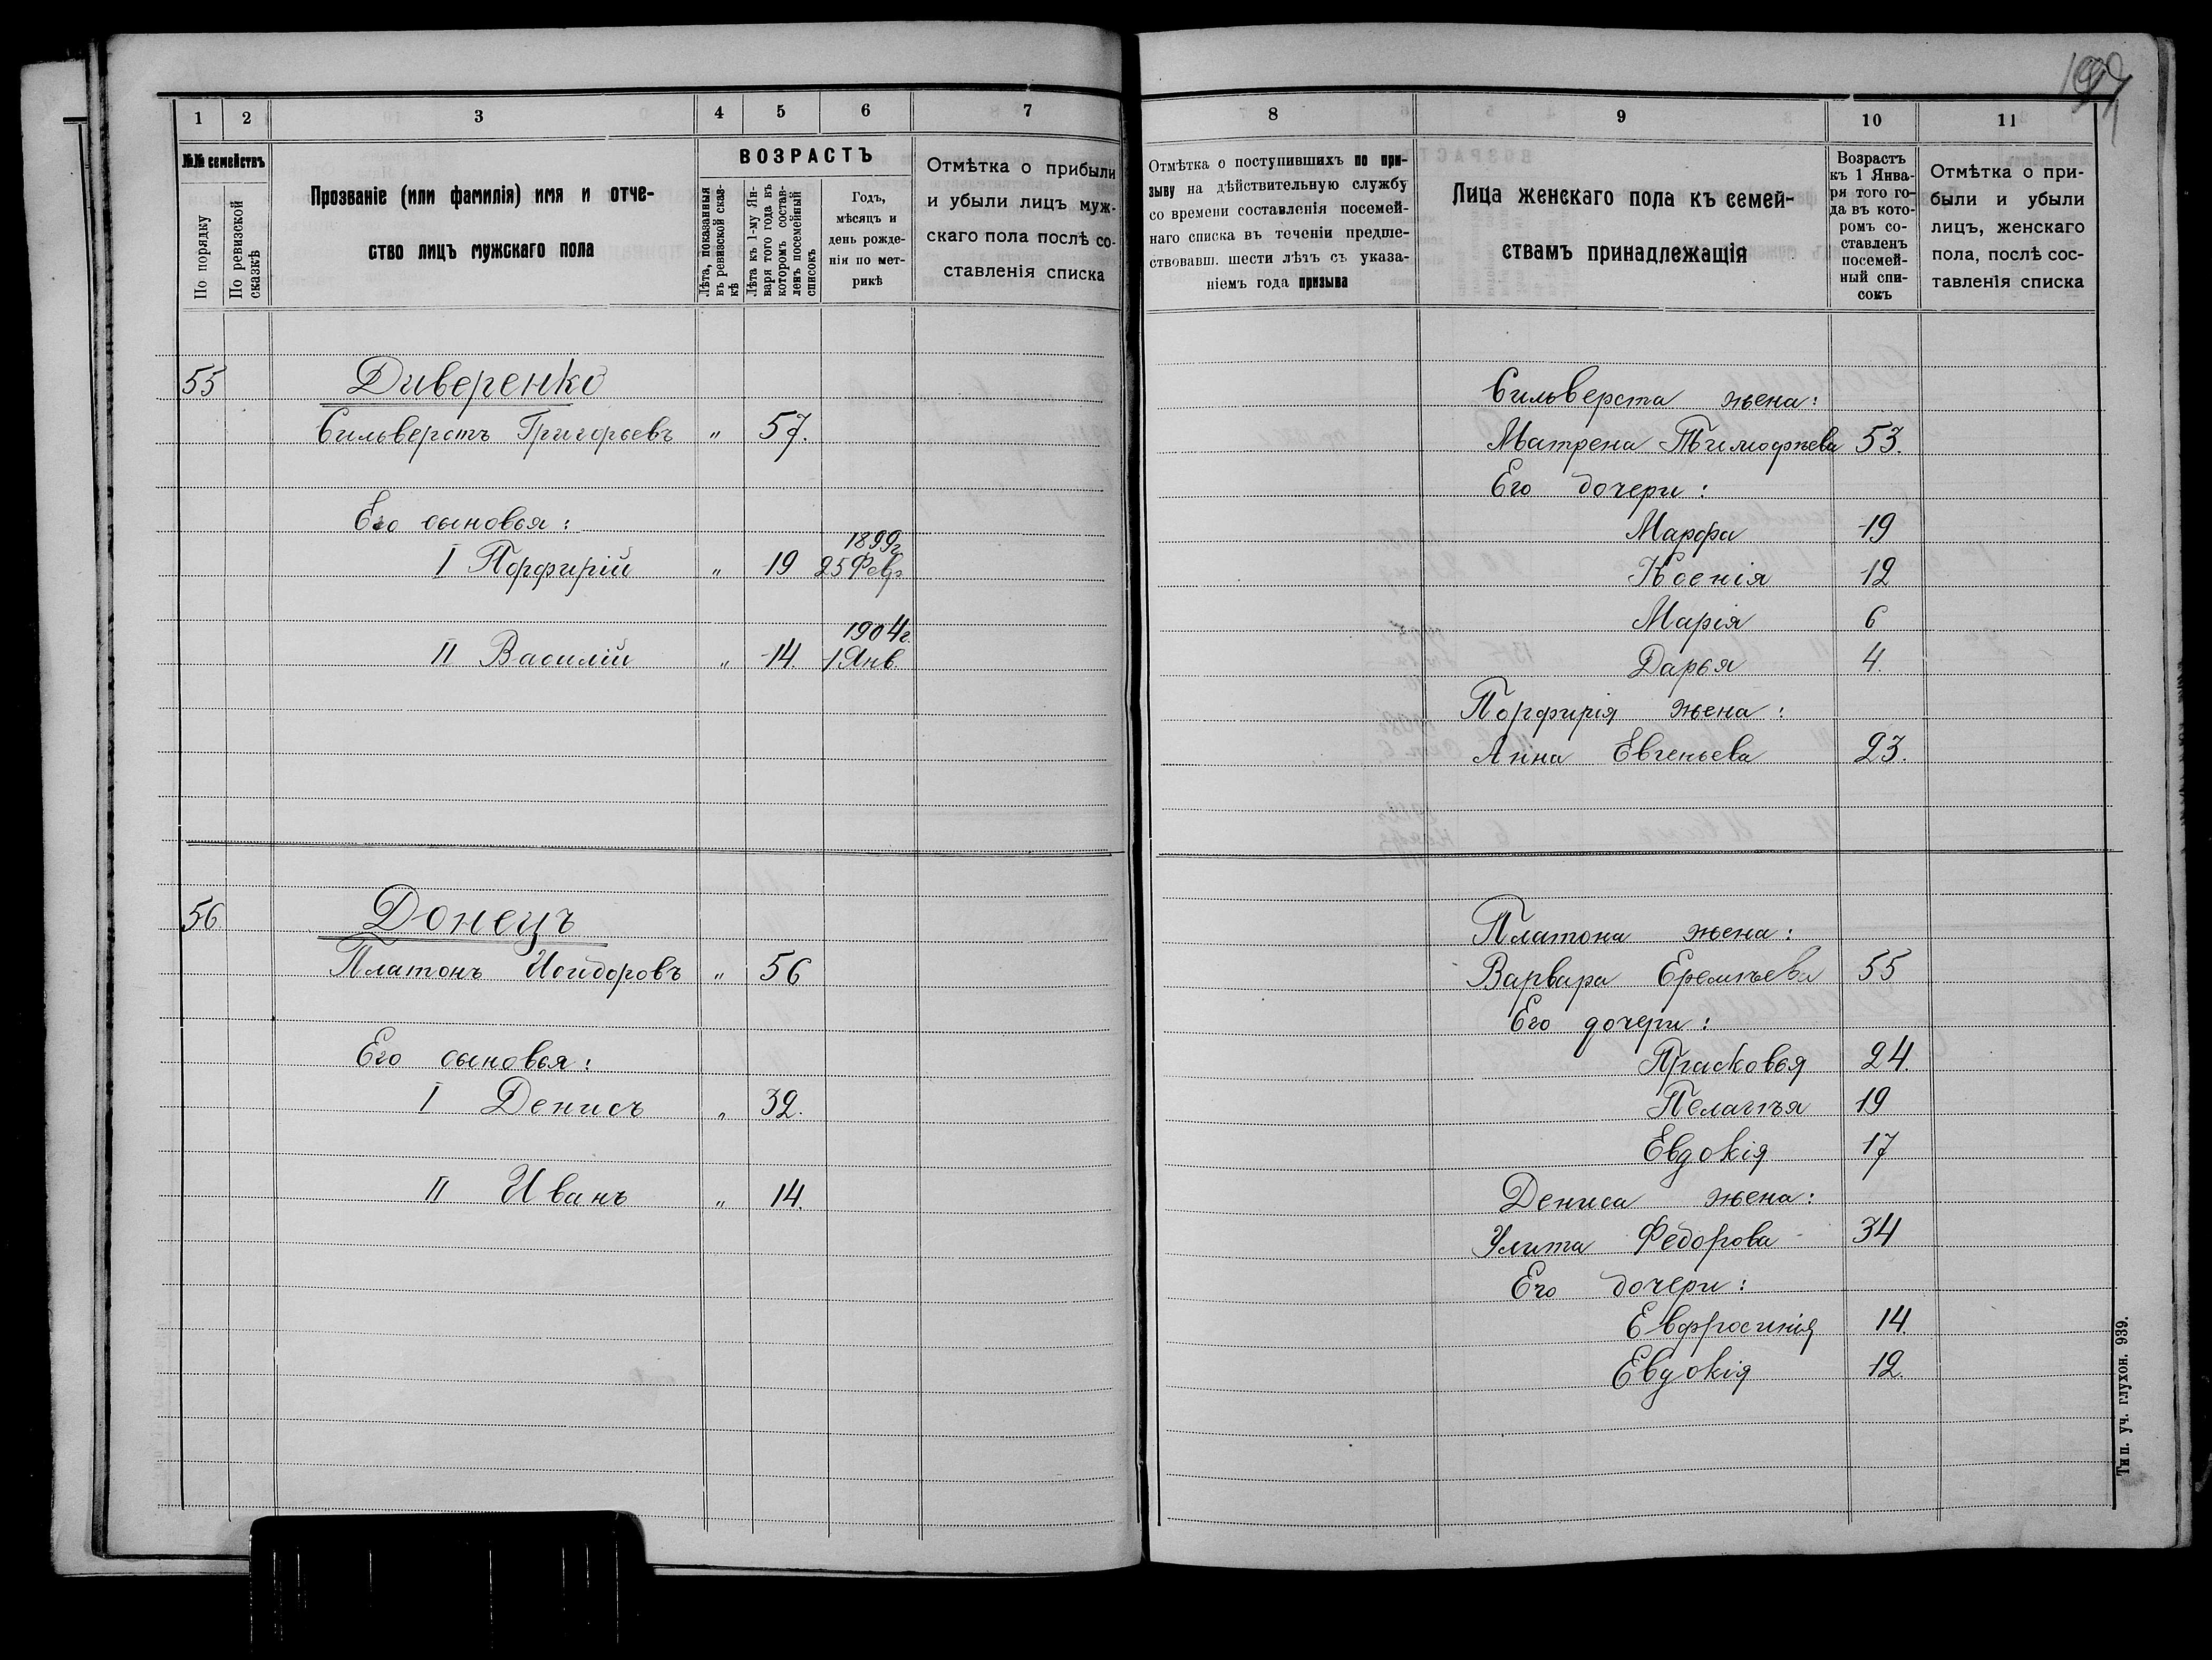 1 2 3 4 5 6 7
№№ семействъ
По порядку
По ревизской сказкѣ
Прозваніе (или фамилія) имя и отче-
ство лицъ мужскаго пола
ВОЗРАСТЪ
Лѣта, показанныя въ ревизской сказ-кѣ
Лѣта къ 1-му Ян-варя того года въ которомъ состав-ленъ посемейный списокъ
Годъ,
мѣсяцъ и
день рожде-
нія по мет-
рикѣ
Отмѣтка о прибыли
и убыли лицъ муж-
скаго пола послѣ со-
ставленія списка
55 Диверенко
Сильверстъ Григорьевъ " 57.
Его сыновья:
1899г.
I Порфирій " 19 25 Февр
1904г.
II Василій " 14 1 Янв.
56 Донецъ
Платонъ Исидоровъ " 56
Его сыновья:
I Денисъ " 32.
II Иванъ " 14.
8 9 10 11
Отмѣтка о поступившихъ по при-
зыву на дѣйствительную службу
со времени составленія посемей-
наго списка въ теченіи предше-
ствовавш. шести лѣтъ съ указа-
ніемъ года призыва
Лица женскаго пола къ семей-
ствамъ принадлежащія
Возрастъ
къ 1 Янва-
ря того го-
да въ кото-
ромъ со-
ставленъ
посемей-
ный спи-
сокъ
Отмѣтка о при-
были и убыли
лицъ, женскаго
пола, послѣ сос-
тавленія списка
Сильверста жена:
Матрена Тимофѣева 53.
Его дочери:
Марфа 19
Ксенія 12
Марія 6
Дарья 4.
Порфирія жена:
Анна Евгеньева 23.
Платона жена:
Варвара Еремѣева 55
Его дочери:
Прасковья 24.
Пелагѣя 19
Евдокія 17
Дениса жена:
Улита Федорова 34
Его дочери:
Евфросинія 14.
Евдокія 12.
Тип. уч. глухон. 939.